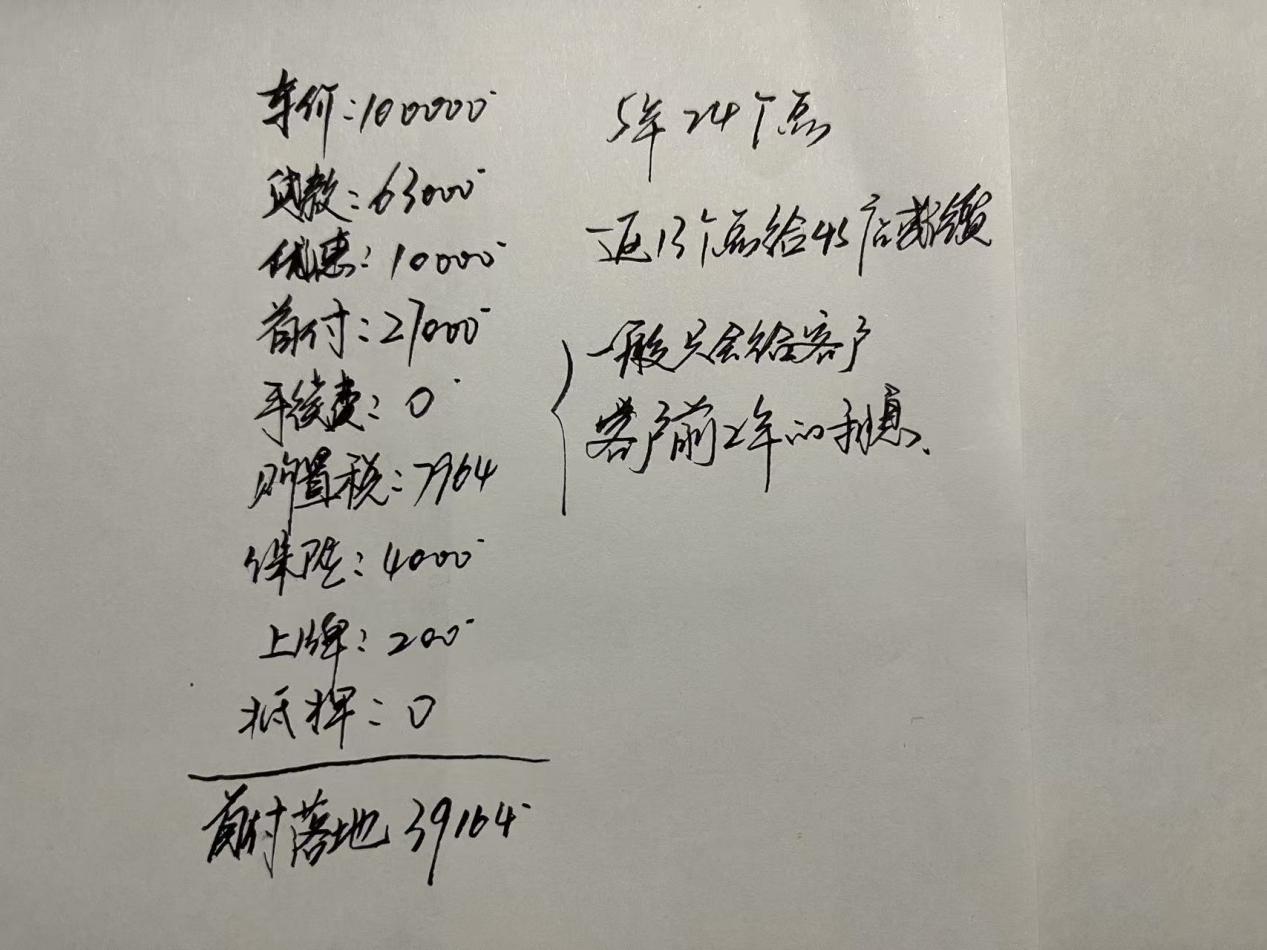 车价:100000
贷款:63000
优惠:10000
首付:27000
手续费:0
购置税:7964
保险:4000
上牌:200
抵押:0
首付落地 39164
5年24个点
返13个点给4S店或
一般只会给客户
客户前2年的利息、